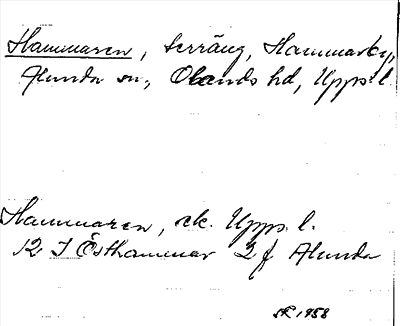 Hammaren, terräng, Hammarby,
Alunda sn, Olands hd, Upps. l.
Hammaren, ek. Upps. l.
12 I Östhammar 2 f Alunda
1958